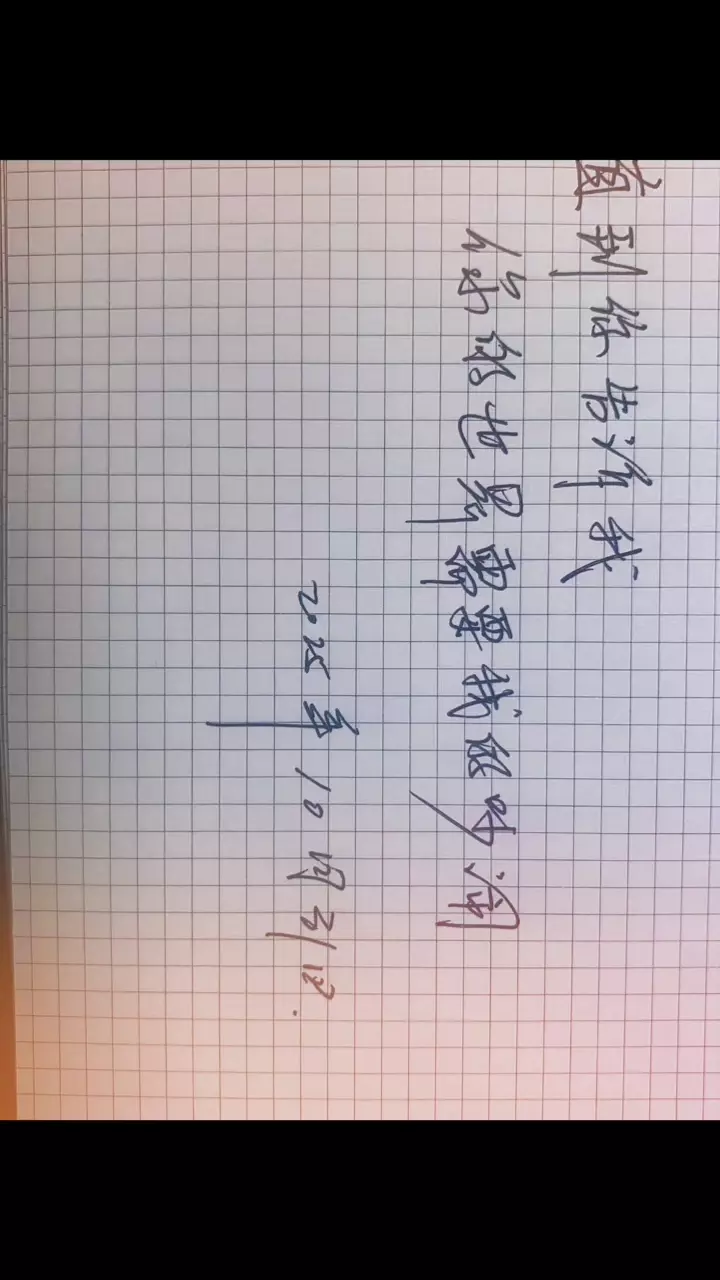 直到你告净我
你能也是需要我的时间
2025年10月31日.